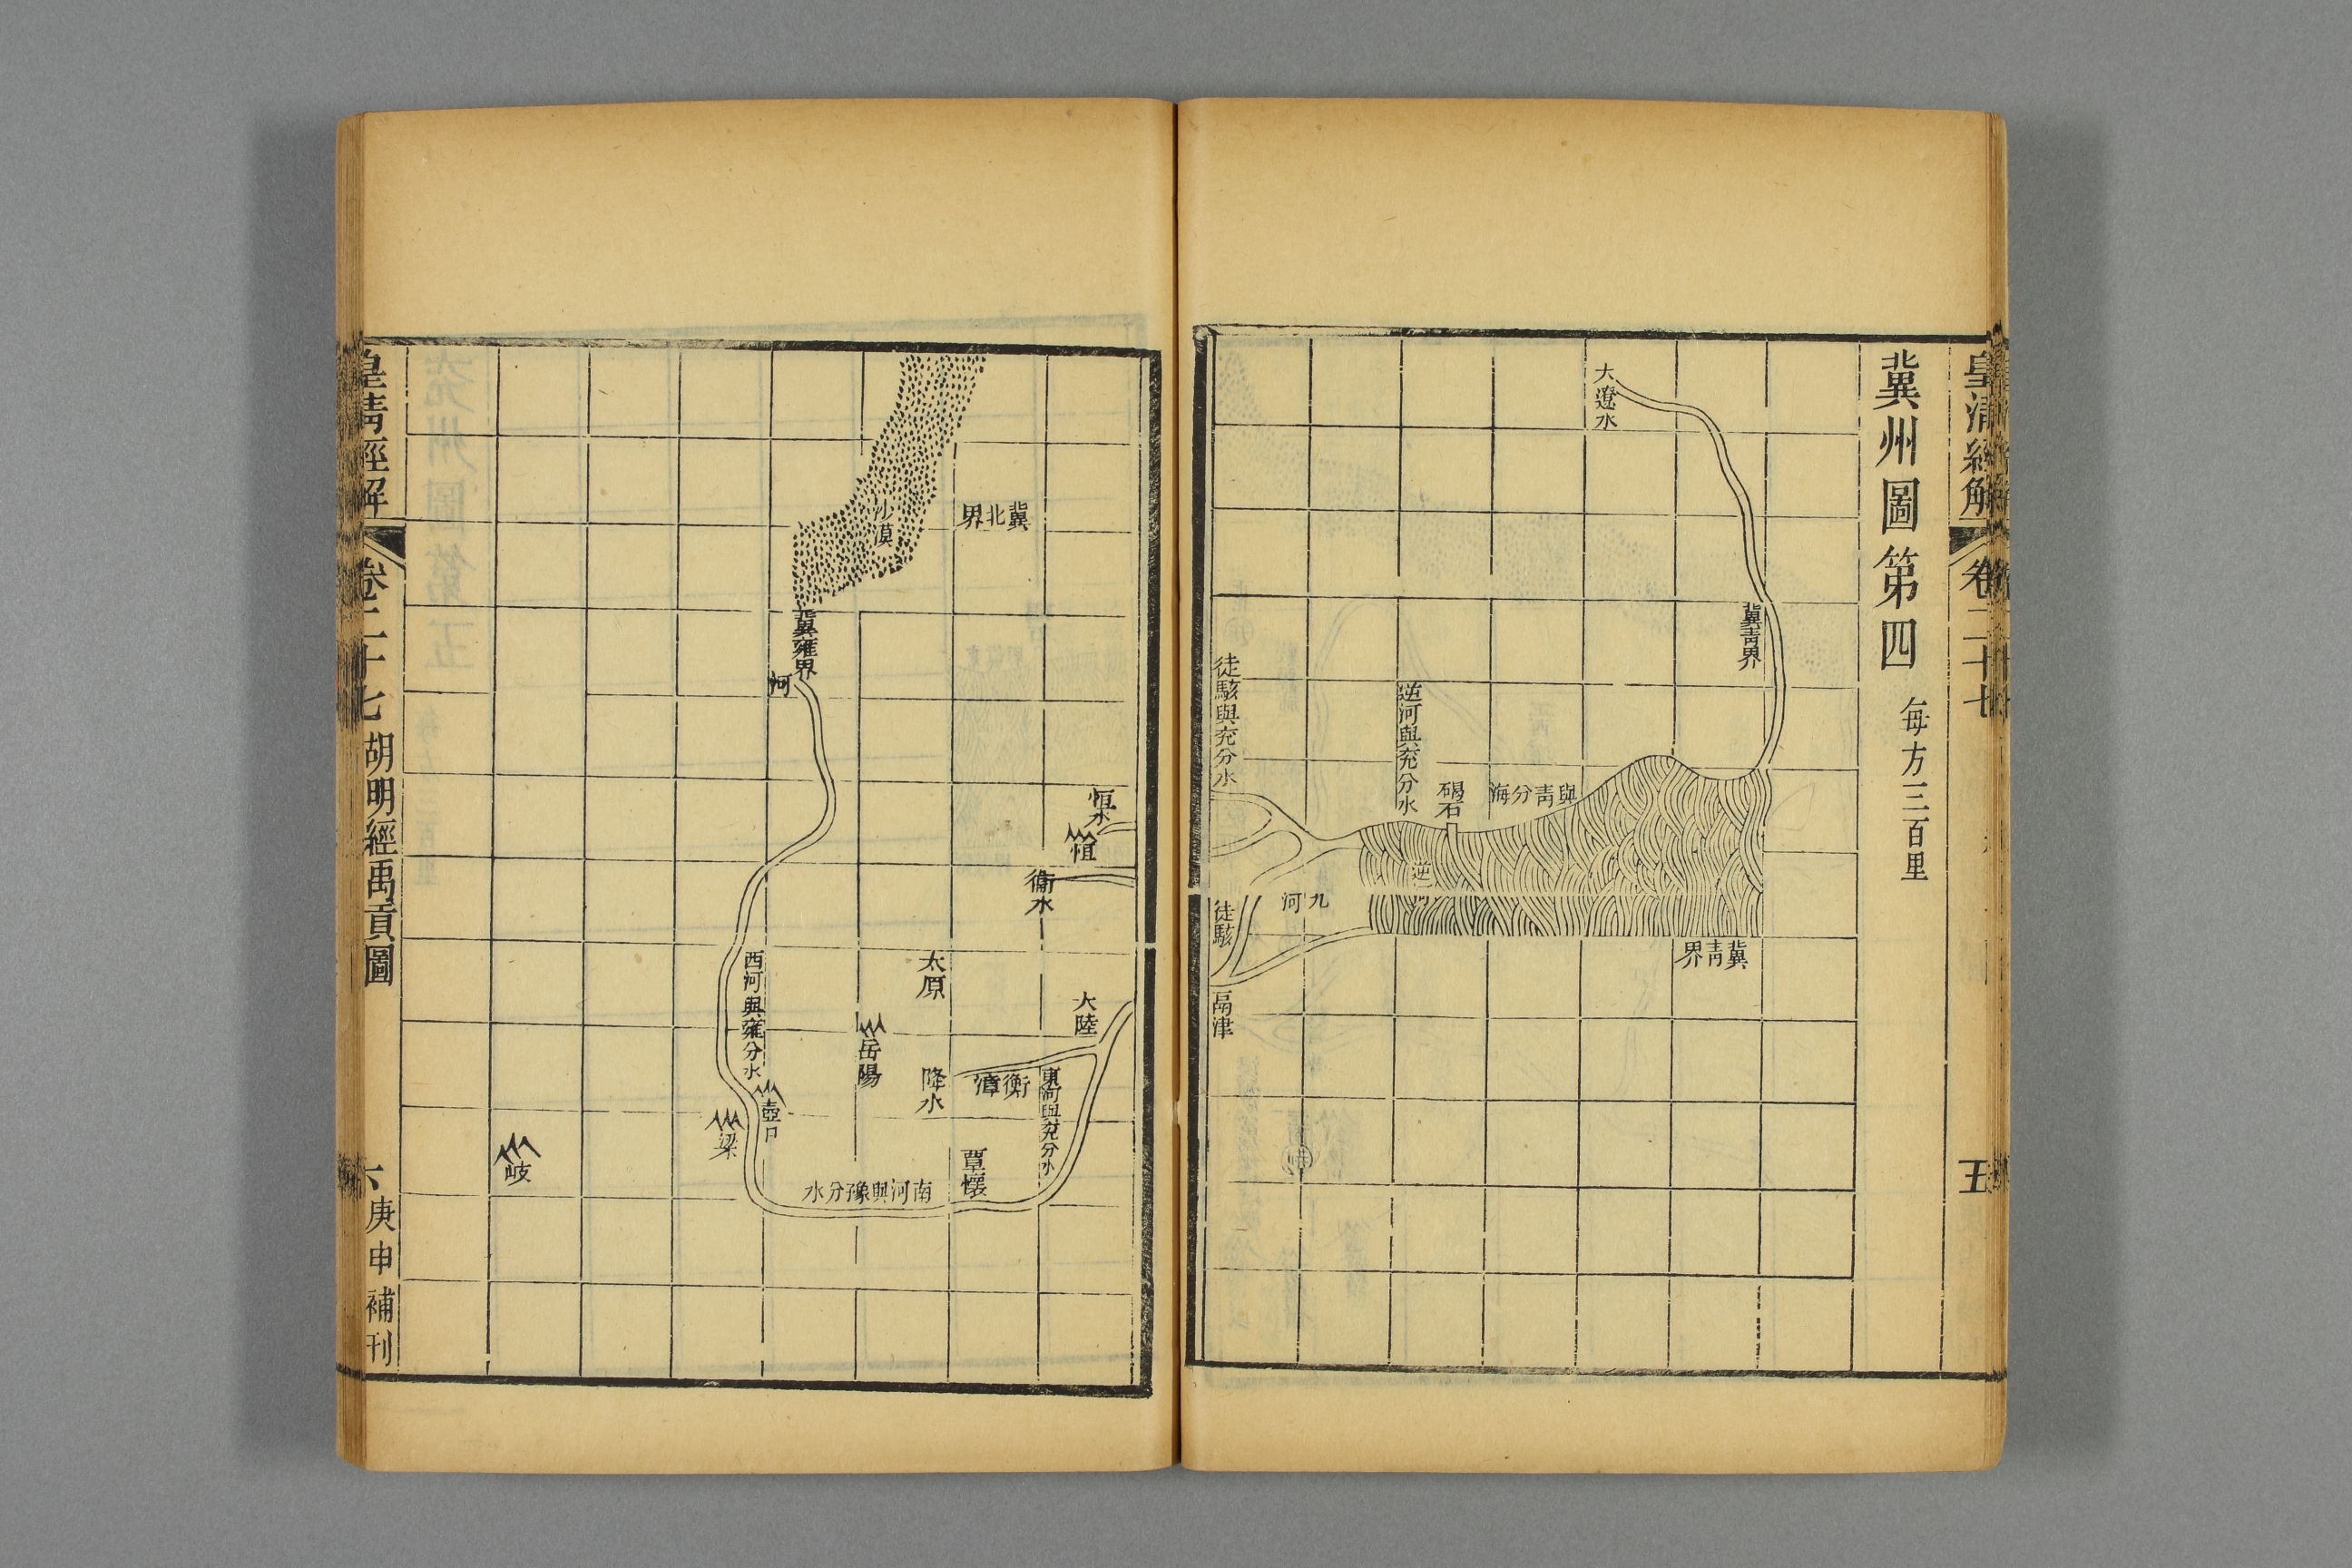 皇清經解
卷二十七
五
冀州圖第四
每方三百里
大遼水
冀青界
與青分海
碣石
逆河與兗分水
徒駭與兗分水
逆河
九河
徒駭
鬲津
冀青界
冀北界
沙漠
冀雍界
河
恒水
恒
衞水
太原
大陸
西河與雍分水
岳陽
降水
衡漳
東河與兗分水
壺口
梁
岐
覃懷
南河與豫分水
皇清經解
卷二十七
胡明經禹貢圖
六
庚申補刊